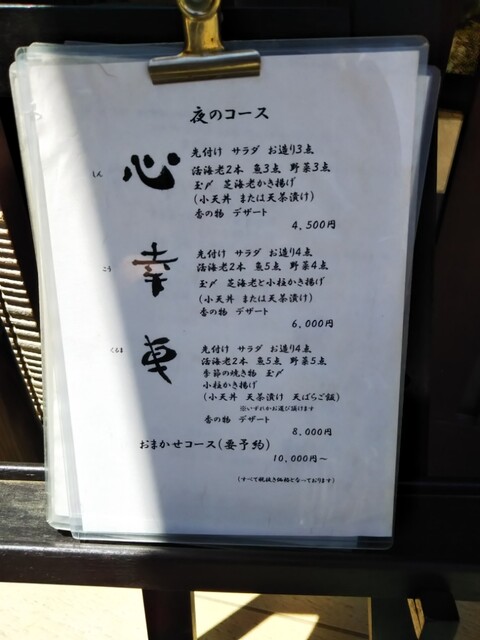 夜のコース
しん
心
先付け サラダ お造り3点
活海老2本 魚3点 野菜3点
玉〆 芝海老かき揚げ
(小天丼 または天茶漬け)
香の物 デザート
4,500円
こう
幸
先付け サラダ お造り4点
活海老2本 魚5点 野菜4点
玉〆 芝海老と小柱かき揚げ
(小天丼 または天茶漬け)
香の物 デザート
6,000円
くるま
車
先付け サラダ お造り4点
活海老2本 魚5点 野菜5点
季節の焼き物 玉〆
小柱かき揚げ
(小天丼 天茶漬け 天ばらご飯)
※いずれかお選び頂けます
香の物 デザート
8,000円
おまかせコース(要予約)
10,000円～
(すべて税抜き価格となっております)